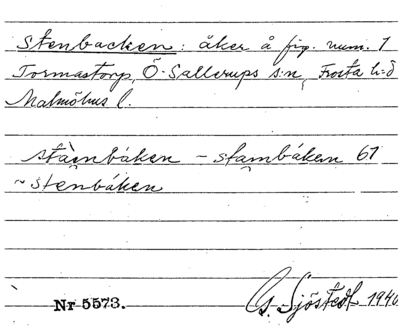 Stenbacken: åker å fig. num. 1
Tormastorp, Ö. Sallerups s:n, Frosta h:d
Malmöhus l.
stàinbáken – stambáken 61
~ stenbáken
Nr 5573.
G. Sjöstedt 1940